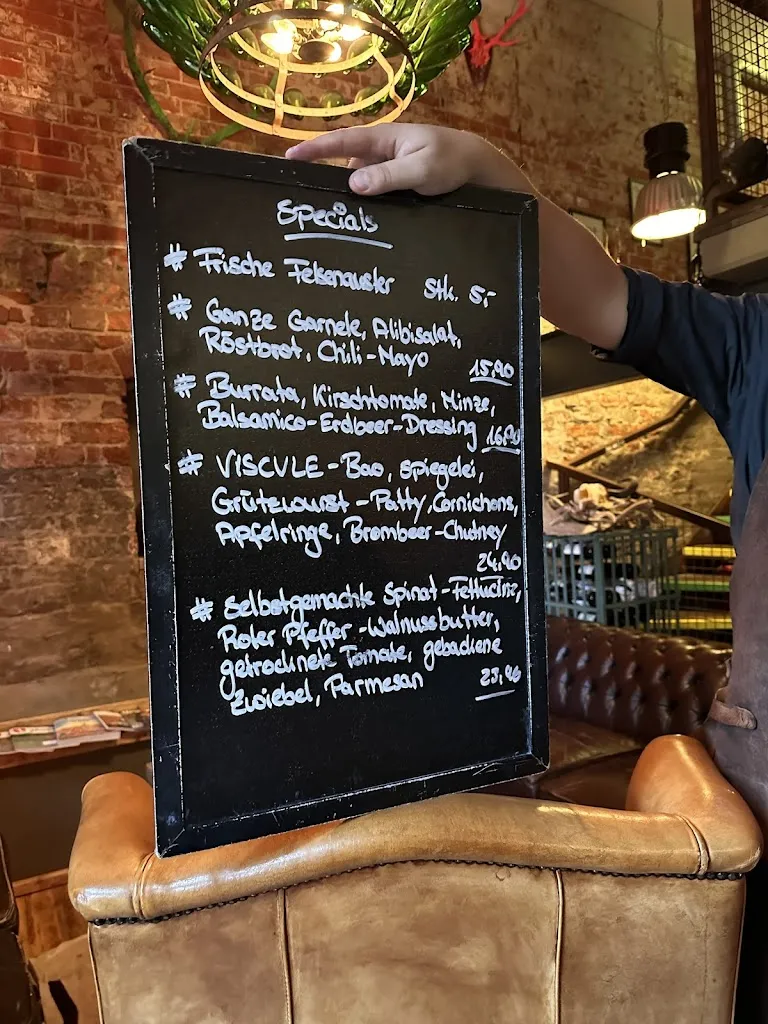 Specials
# Frische Felsenauster Stk. 5,-
# Ganze Garnele, Alibisalat,
Röstbrot, Chili-Mayo
15,90
# Burrata, Kirschtomate, Minze,
Balsamico-Erdbeer-Dressing 16,90
# VISCVLE-Bao, Spiegelei,
Grützwurst-Patty, Cornichons,
Apfelringe, Brombeer-Chutney
24,90
# Selbstgemachte Spinat-Fettucine,
Roter Pfeffer-Walnussbutter,
getrocknete Tomate, gebackene
Zwiebel, Parmesan 23,90